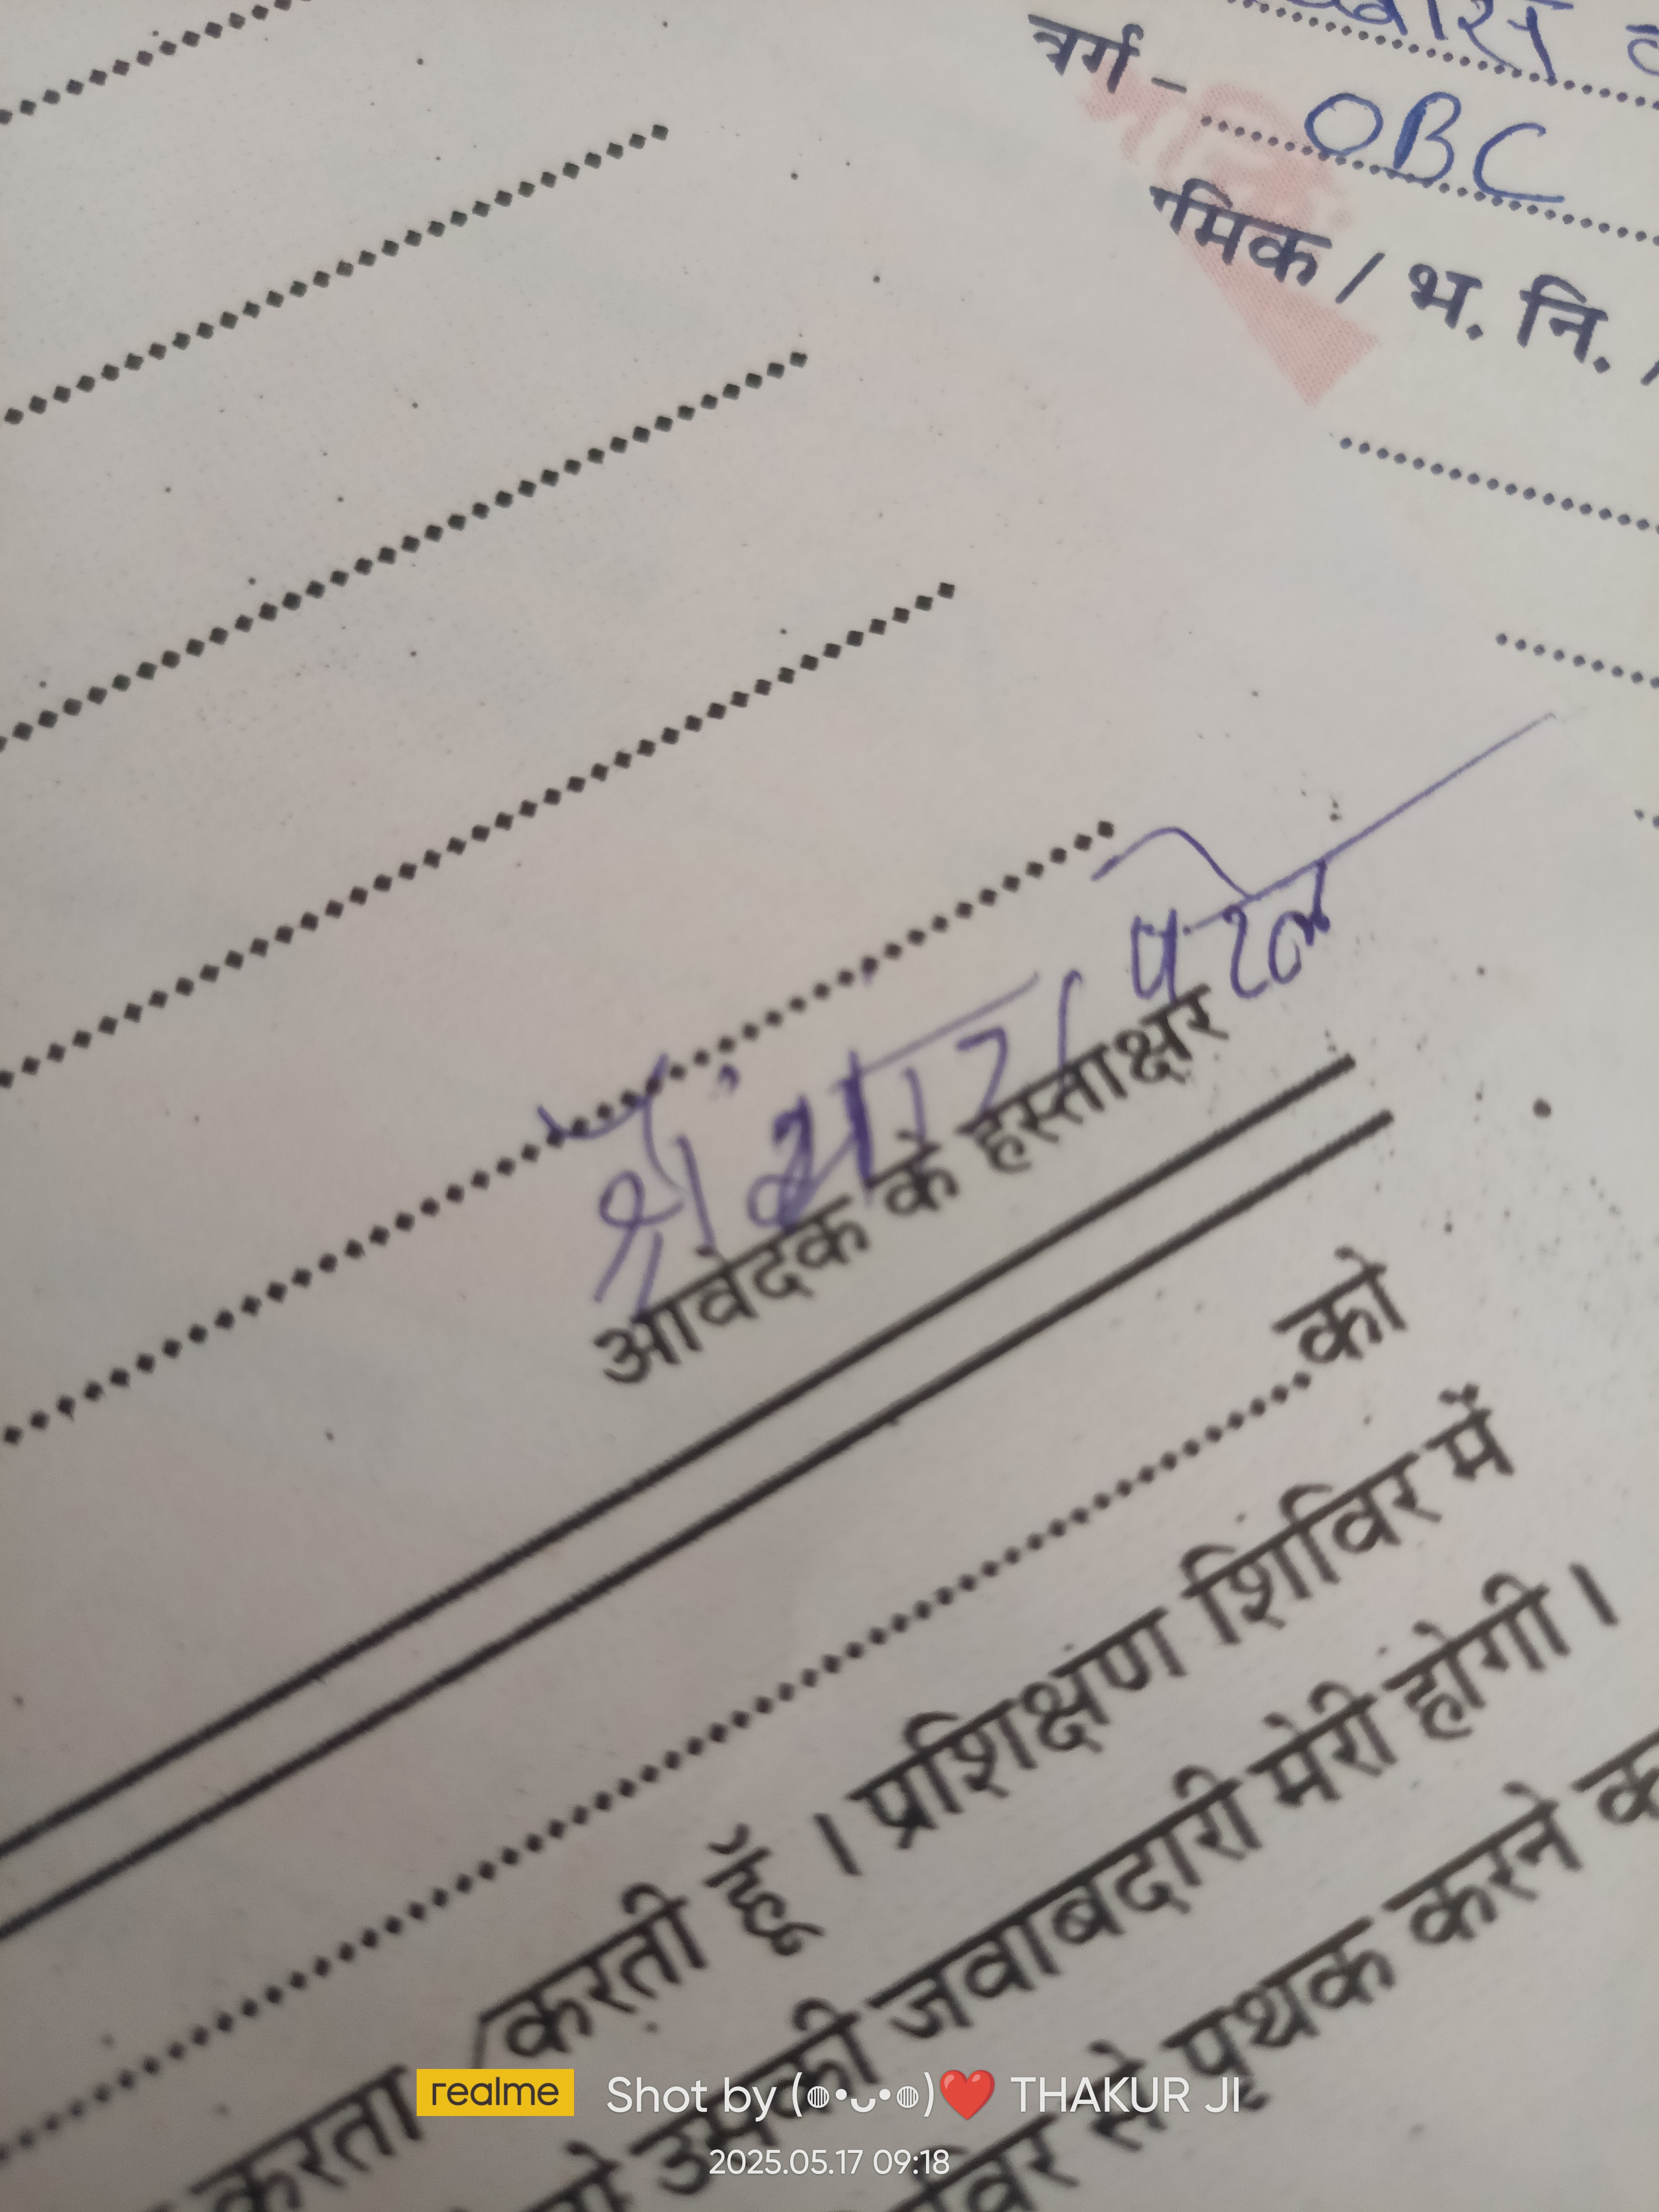 वर्ग - OBC
मिक / भ. नि. /
आवेदक के हस्ताक्षर
को
करता / करती हूँ । प्रशिक्षण शिविर में
उसकी जवाबदारी मेरी होगी ।
से पृथक करने
realme Shot by (◍•ᴗ•◍)❤️ THAKUR JI
2025.05.17 09:18